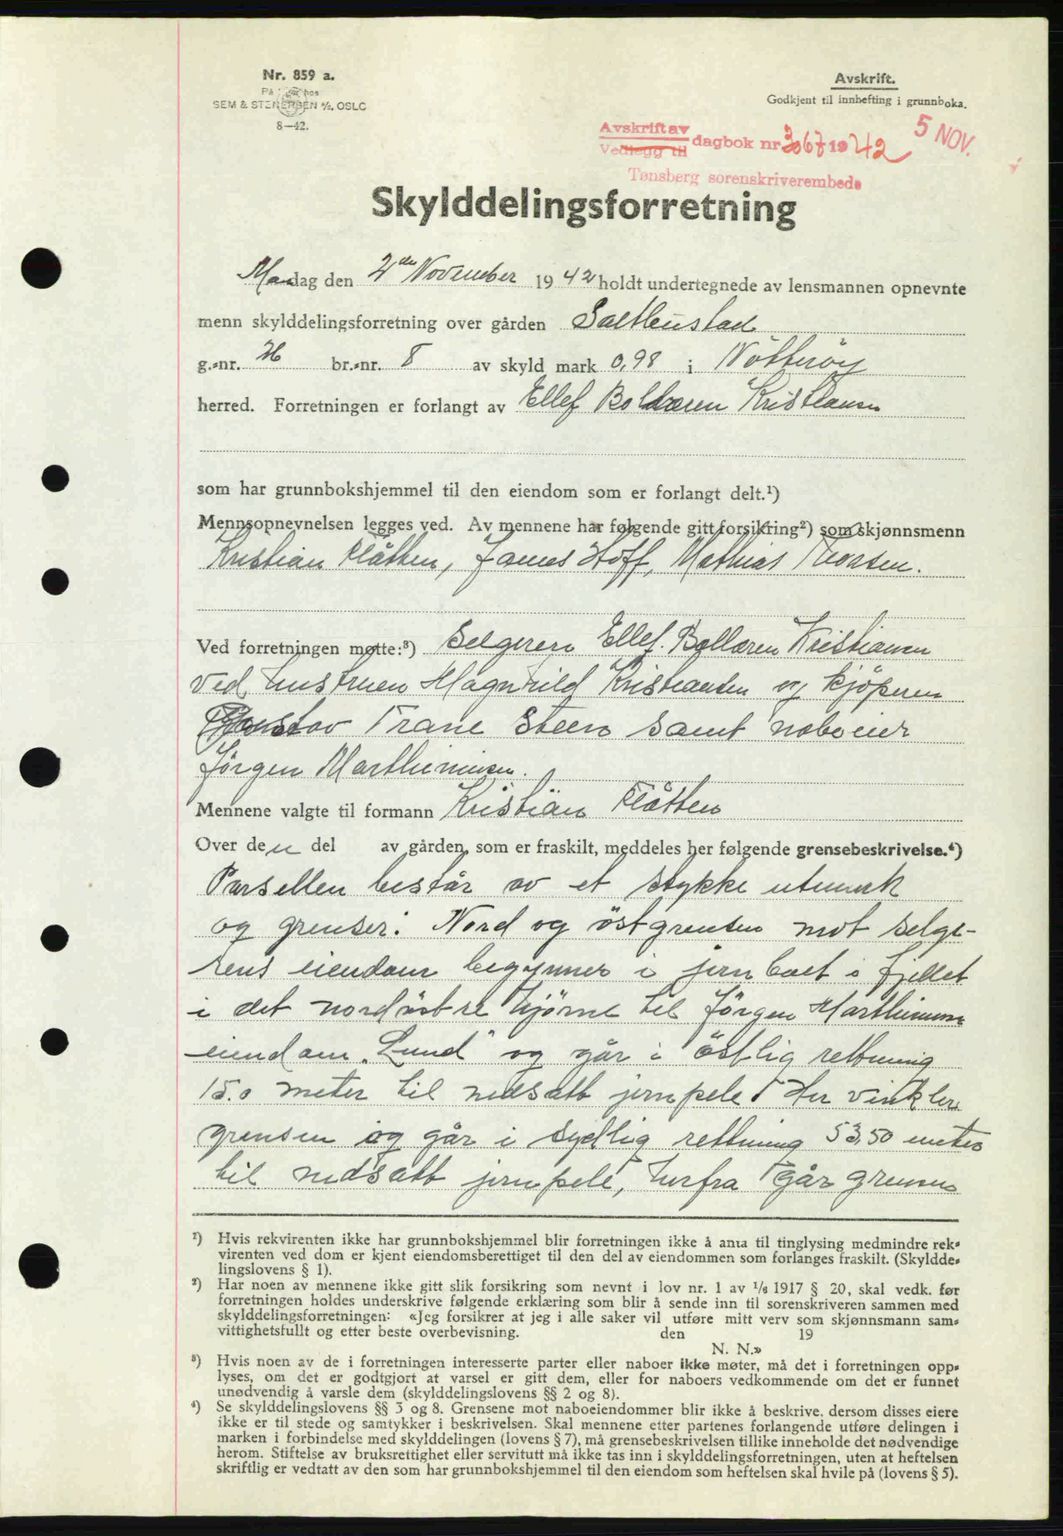 Nr. 859 a.
På lager hos
SEM & STENERSEN A/S, OSLO
8—42.
Avskrift.
Godkjent til innhefting i grunnboka.
Avskrift av
Vedlegg til dagbok nr 3067 1942 5 NOV.
Tønsberg sorenskriverembede
Skylddelingsforretning
Mandag den 2den November 1942 holdt undertegnede av lensmannen opnevnte
menn skylddelingsforretning over gården Saltbustad
g.-nr. 26 br.-nr. 8 av skyld mark 0,98 i Nötteröy
herred. Forretningen er forlangt av Ellef Bolæren Kristiansen
som har grunnbokshjemmel til den eiendom som er forlangt delt.¹)
Mennsopnevnelsen legges ved. Av mennene har følgende gitt forsikring²) som skjønnsmenn
Kristian Flåtten, James Hoff, Mathias Thorsen.
Ved forretningen møtte:³) Selgeren Ellef Bollæren Kristiansen
ved hustruen Magnhild Kristiansen og kjöperen
Gustav Trane Steen samt naboeier
Jörgen Marthinsen.
Mennene valgte til formann Kristian Flåtten
Over den del av gården, som er fraskilt, meddeles her følgende grensebeskrivelse.⁴)
Parsellen består av et stykke utmark
og grenser: Nord og östgrensen mot selge-
rens eiendom begynner i jernbolt i fjellet
i det nordöstre hjörne til Jörgen Marthinsens
eiendom „Lund" og går i östlig rettning
15.0 meter til nedsatt jernpele. Her vinkler
grensen og går i sydlig rettning 53,50 meter
til nedsatt jernpele, herfra går grensen
¹) Hvis rekvirenten ikke har grunnbokshjemmel blir forretningen ikke å anta til tinglysing medmindre rek-
virenten ved dom er kjent eiendomsberettiget til den del av eiendommen som forlanges fraskilt. (Skyldde-
lingslovens § 1).
²) Har noen av mennene ikke gitt slik forsikring som nevnt i lov nr. 1 av ¹/₈ 1917 § 20, skal vedk. før
forretningen holdes underskrive følgende erklæring som blir å sende inn til sorenskriveren sammen med
skylddelingsforretningen: «Jeg forsikrer at jeg i alle saker vil utføre mitt verv som skjønnsmann sam-
vittighetsfullt og etter beste overbevisning. den 19
N. N.»
³) Hvis noen av de i forretningen interesserte parter eller naboer ikke møter, må det i forretningen opp-
lyses, om det er godtgjort at varsel er gitt dem, eller for naboers vedkommende om det er funnet
unødvendig å varsle dem (skylddelingslovens §§ 2 og 8).
⁴) Se skylddelingslovens §§ 3 og 8. Grensene mot naboeiendommer blir ikke å beskrive, dersom disses eiere
ikke er til stede og samtykker i beskrivelsen. Skal mennene etter partenes forlangende utføre delingen i
marken i forbindelse med skylddelingen (lovens § 7), må grensebeskrivelsen tillike inneholde det nødvendige
herom. Stiftelse av bruksrettighet eller servitutt må ikke tas inn i skylddelingsforretningen, uten at heftelsen
skriftlig er vedtatt av den som har grunnbokshjemmel til den eiendom som heftelsen skal hvile på (lovens § 5).